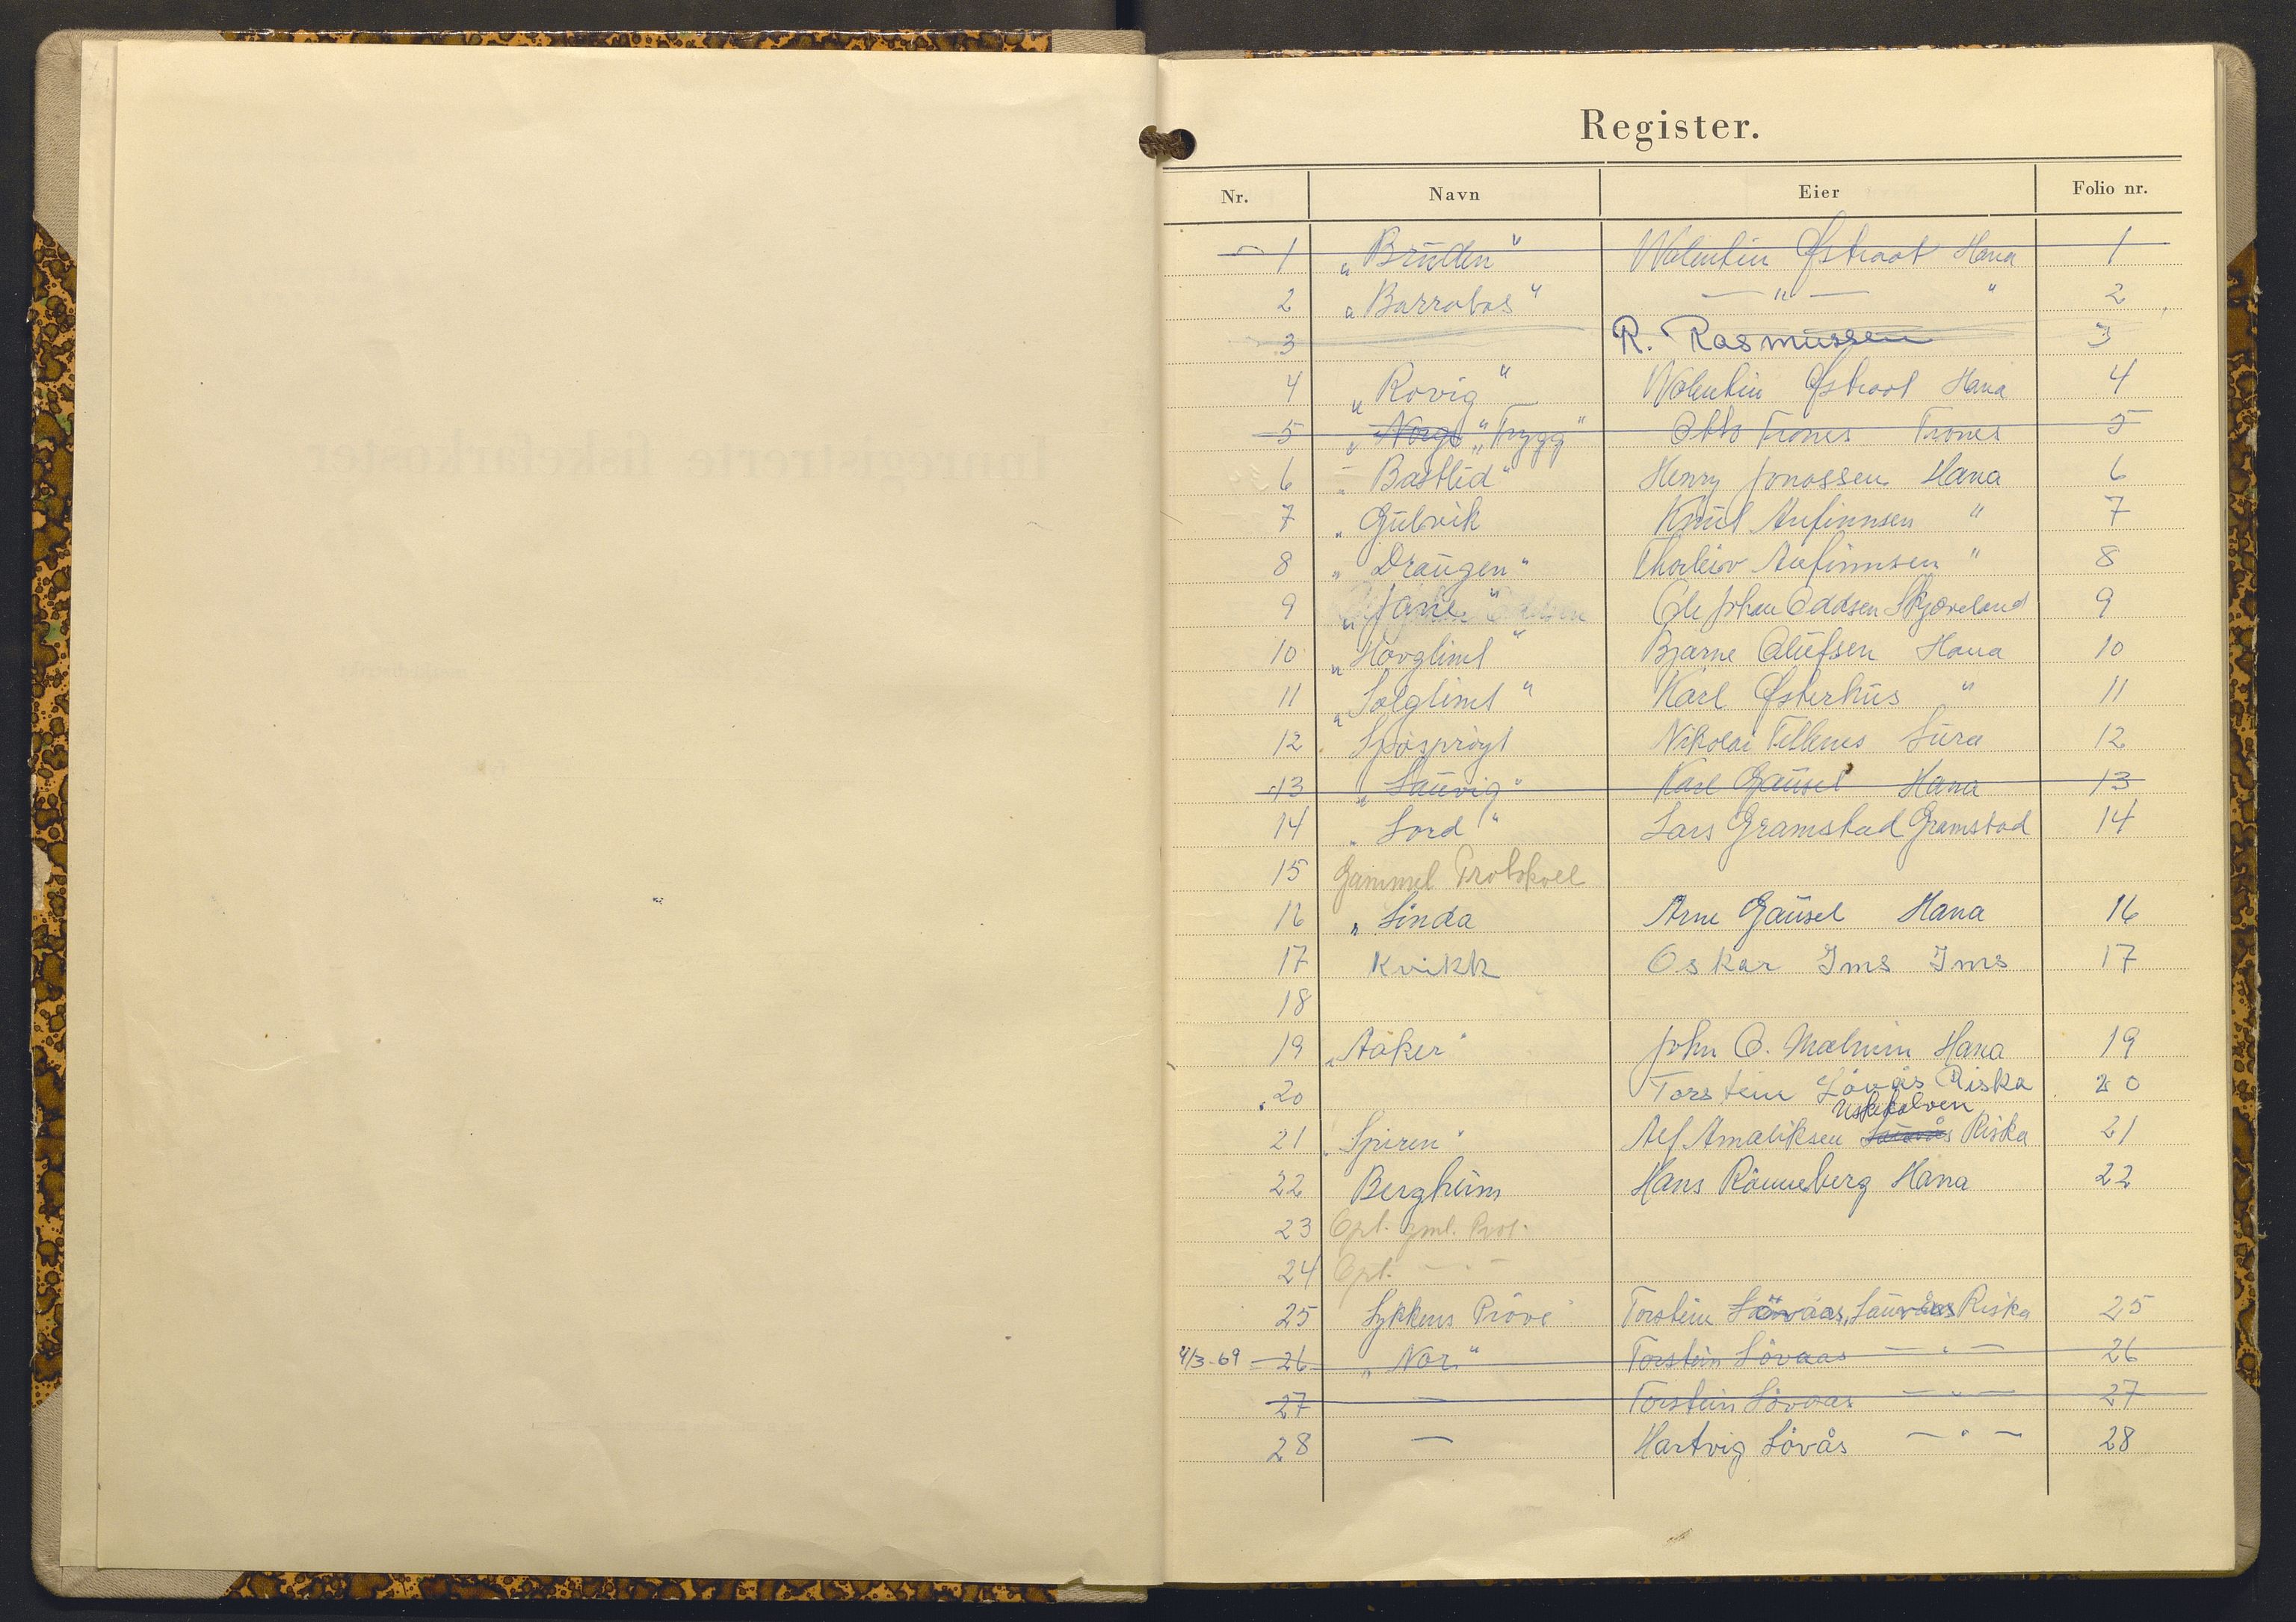 Register.
Nr. Navn Eier Folio nr.
1 „Brüden" Valentin Østraat Hana 1
2 „Barrabas" — " — " 2
3 R. Rasmussen 3
4 „Rovig" Valentin Østraat Hana 4
5 „Norge" „Trygg" Otto Trones Trones 5
6 „Basttid" Henry Jonassen Hana 6
7 „Gulvik Knut Anfinnsen " 7
8 „Draugen" Thorleiv Anfinnsen " 8
9 „Jane" Ole Johan Oddsen Skjæveland 9
10 „Havglimt" Bjarne Olufsen Hana 10
11 „Solglimt" Karl Østerhus " 11
12 Sjøsprøyt Nikolai Tellenes Lura 12
13 „Lauvig" Karl Gausel Hana 13
14 „Lord" Lars Gramstad Gramstad 14
15 Gammel Protokoll
16 „Linda Arne Gausel Hana 16
17 Kvikk Oskar Ims Ims 17
18
19 „Aaker" John O. Malmin Hana 19
20 Torstein Lövås Riska 20
Uskekalven
21 „Spiren" Alf Amaliksen Lauvås Riska 21
22 Bergheim Hans Rönneberg Hana 22
23 Opt. gml. Prot.
24 Opt. — " —
25 Lykkens Pröve Torstein Lövaas, Lauvaas Riska 25
4/3-69 26 „Nor" Torstein Lövaas — " — 26
27 — Torstein Lövaas — " — 27
28 — Hartvig Lövås — " — 28